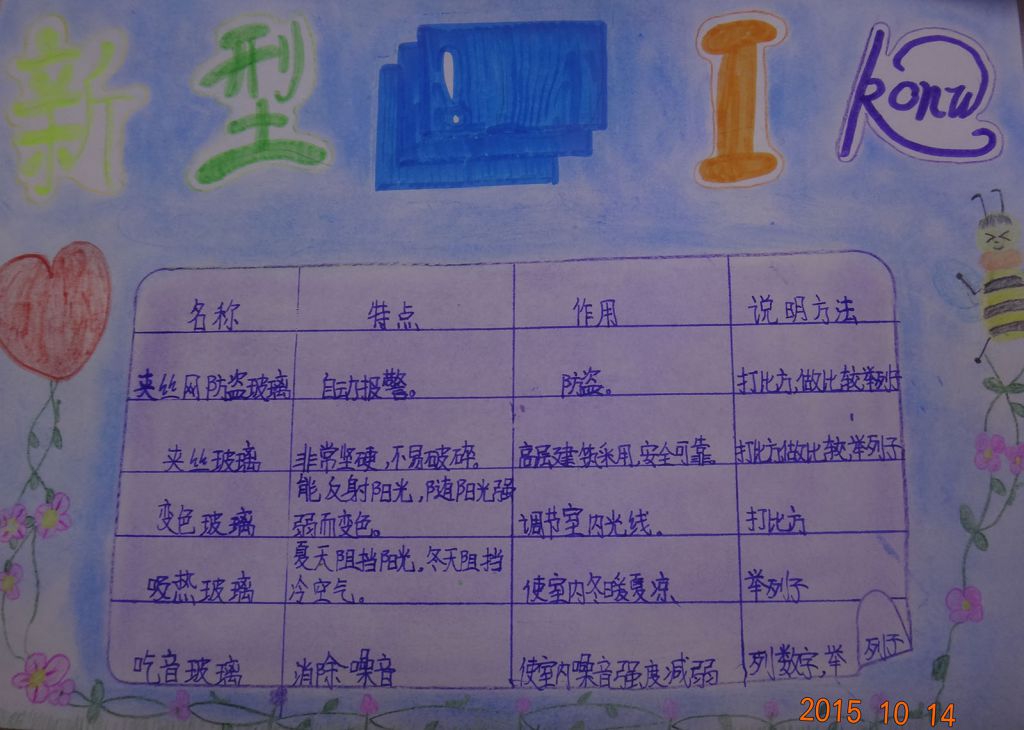 新型 I konw
名称 特点 作用 说明方法
夹丝网防盗玻璃 自动报警。 防盗。 打比方,做比较,举列子
夹丝玻璃 非常坚硬,不易破碎。 高层建筑采用,安全可靠。 打比方,做比较,举列子
能反射阳光,随阳光强
变色玻璃 弱而变色。 调节室内光线。 打比方
夏天阻挡阳光。冬天阻挡
吸热玻璃 冷空气。 使室内冬暖夏凉 举列子
吃音玻璃 消除噪音 使室内噪音强度减弱 列数字,举列子
2015 10 14